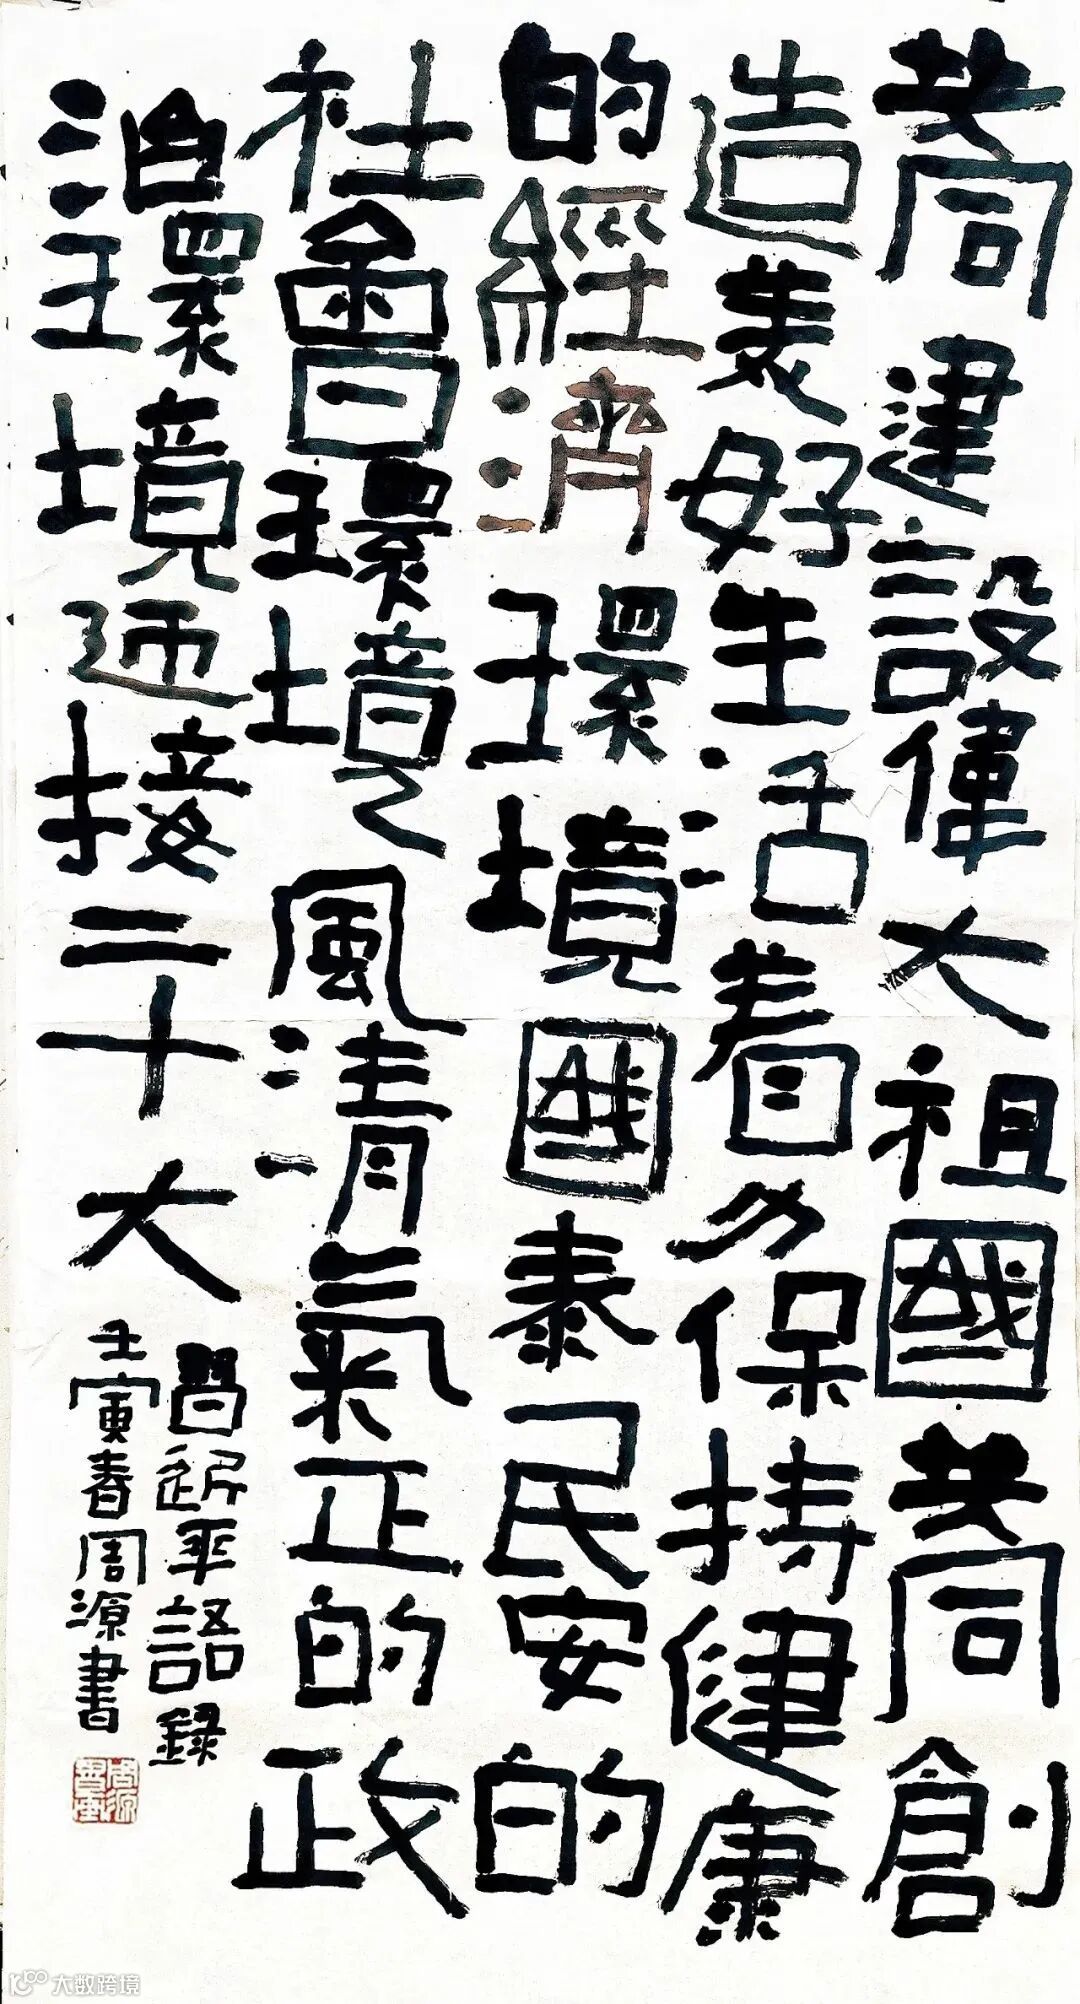 共同建設偉大祖國共同創
造美好生活着力保持健康
的經濟環境國泰民安的
社會環境風清氣正的政
治環境迎接二十大
習近平語錄
壬寅春周源書
大数跨境